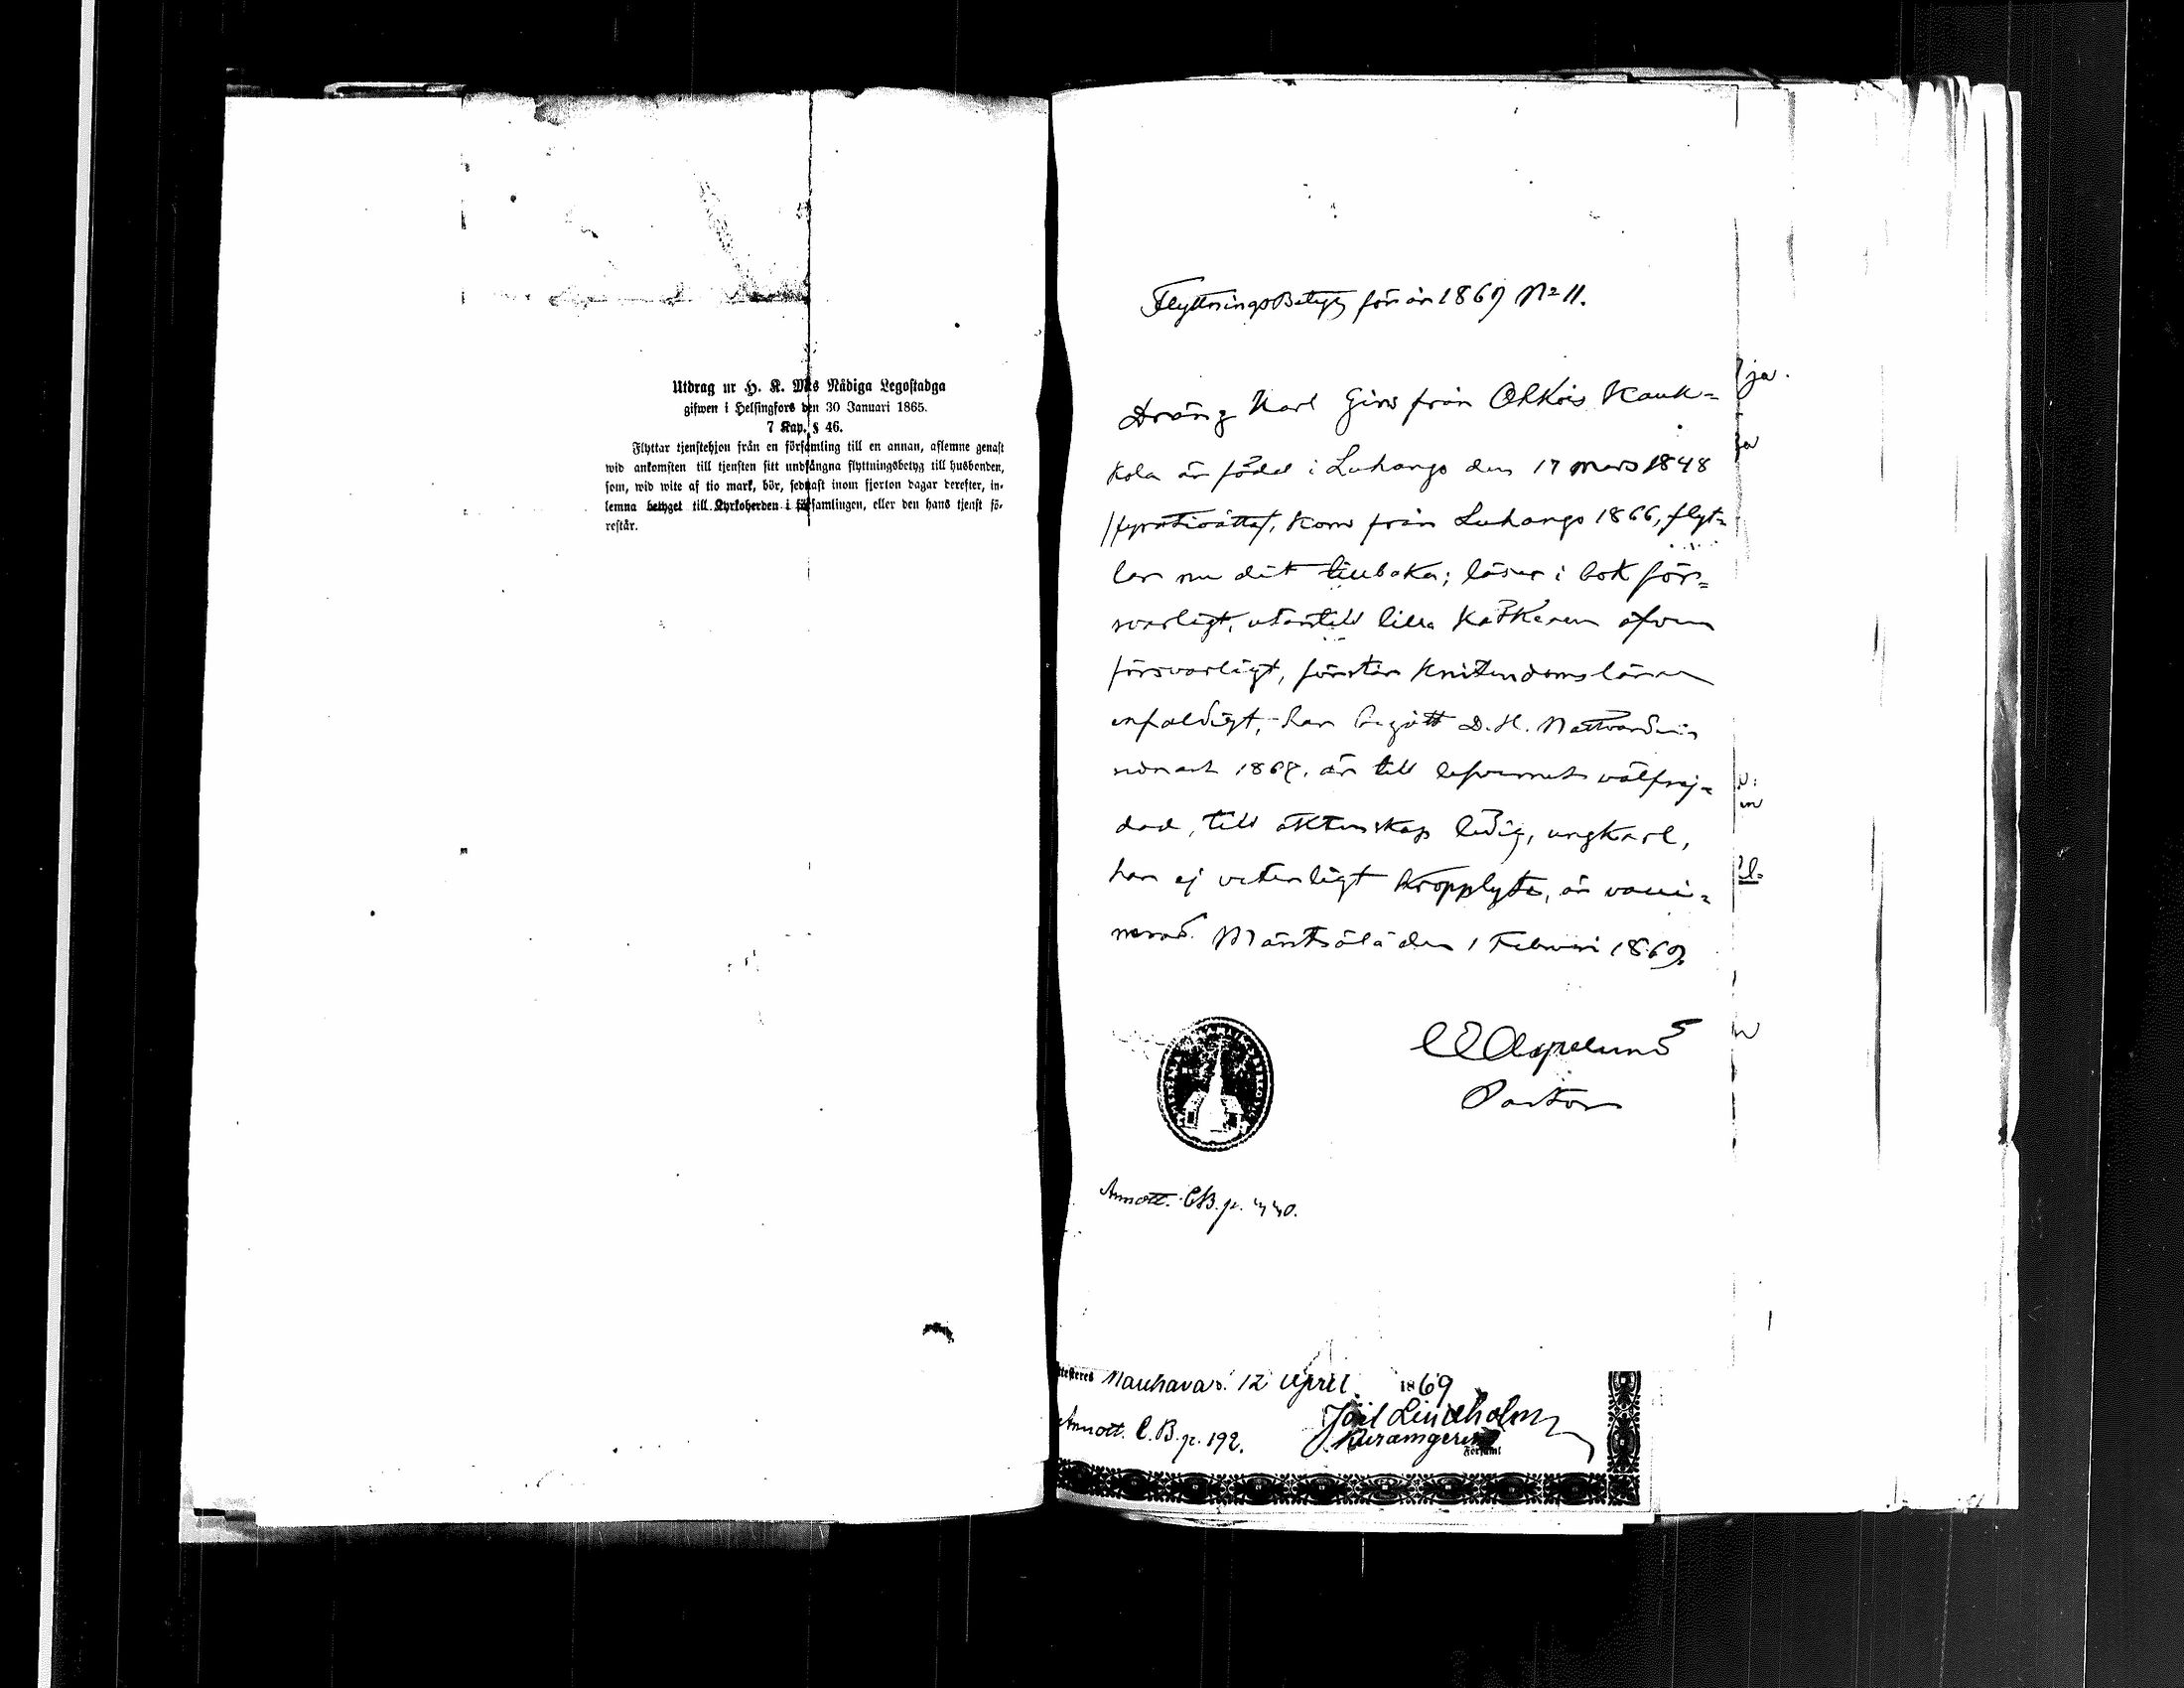 Utdrag ur H. K. M:ts Nådiga Legostadga
gifwen i Helsingfors den 30 Januari 1865.
7 Kap. § 46.
Flyttar tjenstehjon från en församling till en annan, aflemne genast
wid ankomsten till tjensten sitt undfångna flyttningsbetyg till husbonden,
som, wid wite af tio mark, bör, sednast inom fjorton dagar derefter, in-
lemna betyget till Kyrkoherden i församlingen, eller den hans tjenst fö-
restår.
FlyttningsBetyg för år 1869 No 11.
Dräng Karl from Ohkois Kauk=
kola är född i Luhango den 17 Mars 1848
/fyratioåtta/, kom från Luhango 1866, flyt=
tar nu dit tillbaka; läser i bok för=
svarligt, utantill lilla Katkesen äfven
försvarligt, förstår Kristendomsläran
enfaldigt, har begått D. H. Nattvarden
senast 1868, är till lefvernet välfrej=
dad, till äktenskap ledig, ungkarl,
har ej veterligt kropplyte, är vacci=
nerad. Mäntsälä den 1 Februari 1869.
Aspelund
Pastor
Annott. CB. p. 440.
ja.
ja
Attesteres Mauhavas. 12 April 1869
Annott. C.B. p. 192.
Joël Lindholm
Församl